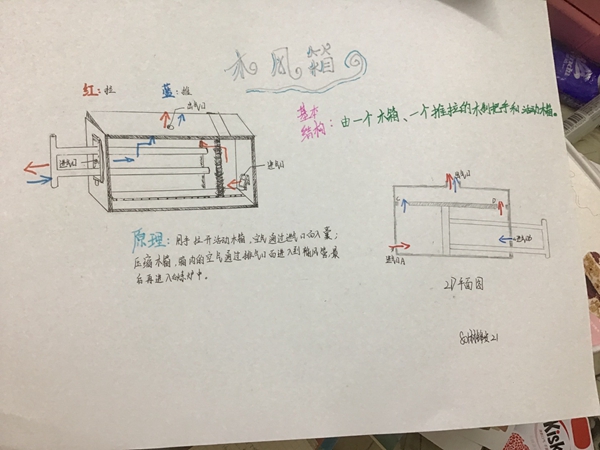 木风箱
红:拉
蓝:推
出气口
进气口
进气口
基本
结构:由一个木箱、一个推拉的木制把手和活动木箱。
原理:用手拉开活动木箱,空气通过进气口而入橐;
压缩木箱,箱内的空气通过排气口而进入到输风管,最
后再进入炼炉中。
出气口
进气口A
进气口B
2D平面图
Kisk